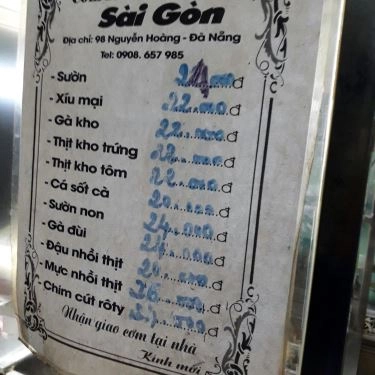 Sài Gòn
Địa chỉ: 98 Nguyễn Hoàng - Đà Nẵng
Tel: 0908. 657 985
- Sườn 24.000đ
- Xíu mại 22.000đ
- Gà kho 22.000đ
- Thịt kho trứng 22.000đ
- Thịt kho tôm 22.000đ
- Cá sốt cà 20.000đ
- Sườn non 24.000đ
- Gà đùi 24.000đ
- Đậu nhồi thịt 20.000đ
- Mực nhồi thịt 26.000đ
- Chim cút rôty .000đ
Nhận giao cơm tại nhà
Kính mời